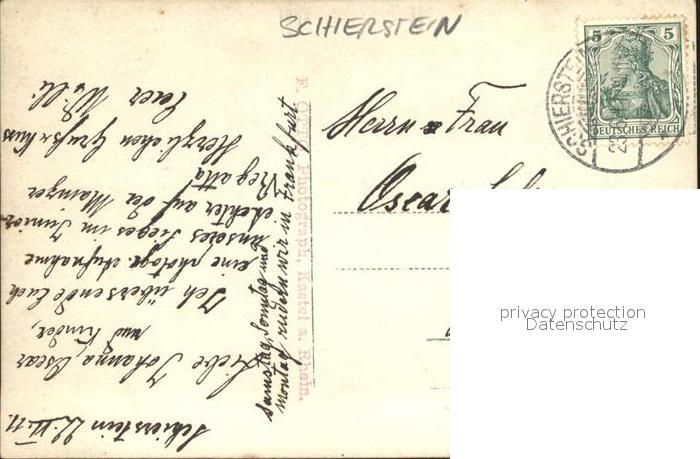 SCHIERSTEIN
5 5
DEUTSCHES REICH
SCHIERSTEIN
Herrn & Frau
Oscar
privacy protection
Datenschutz
Schierstein 22.VI.11.
Liebe Johanna, Oscar
und Kinder,
Ich übersende Euch
eine photogr. Aufnahme
unseres Sieges im Junior
Achter auf der Mainzer
Regatta
Herzlichen Gruß & Kuss
Euer Willi
Samstag, Sonntag und
Montag rudern wir in Frankfurt
Photograph, Kastel a. Rhein.